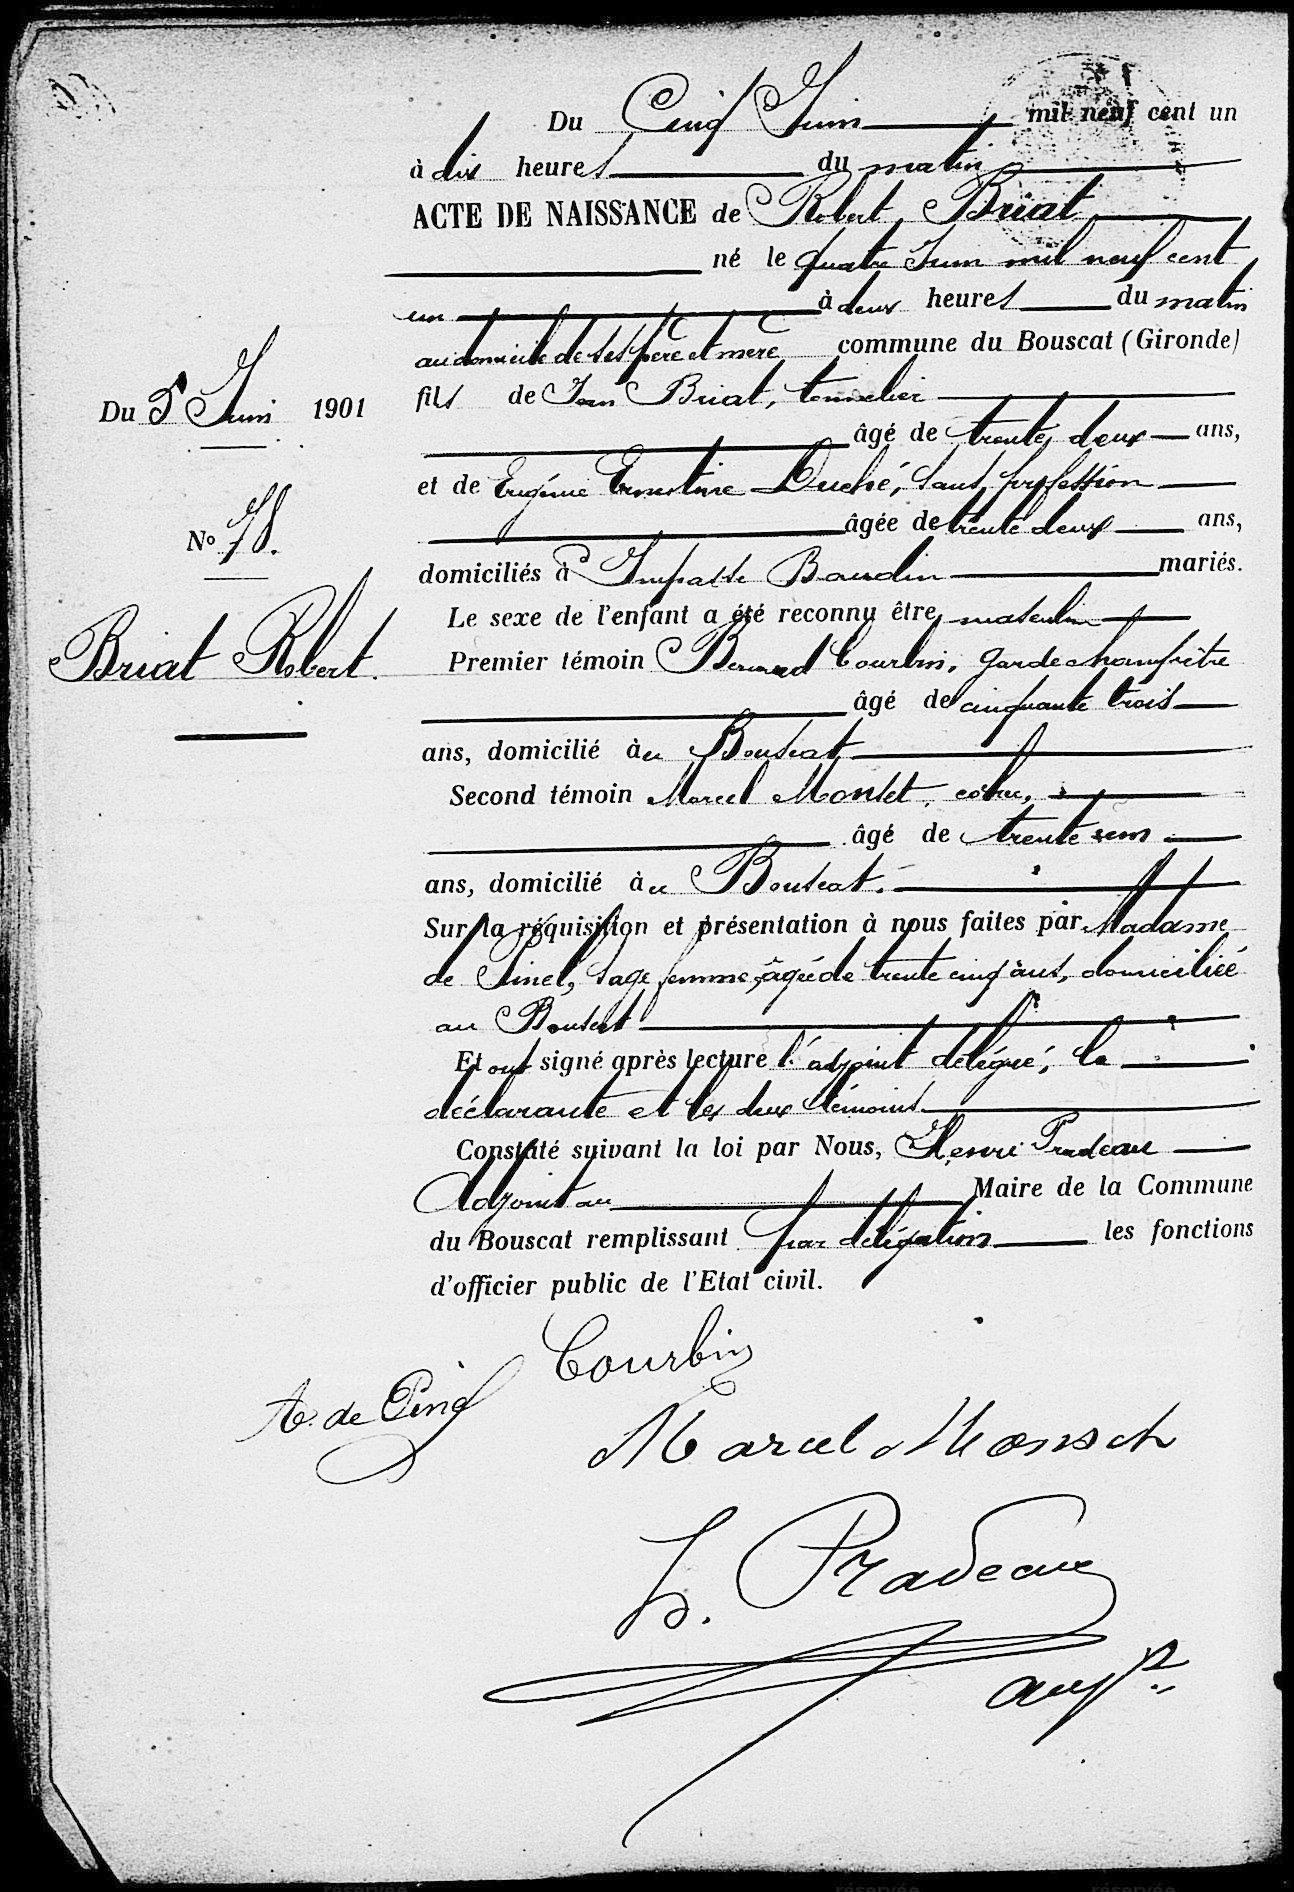 Du Cinq Juin mil neuf cent un
à dix heures du matin
ACTE DE NAISSANCE de Robert Briat
né le quatre Juin mil neuf cent
un à deux heures du matin
au domicile de ses père et mère commune du Bouscat (Gironde)
fils de Jean Briat, tonnelier
Du 5 Juin 1901
âgé de trente deux ans,
et de Eugénie Ernestine Duché, sans profession
No 78.
âgée de trente deux ans,
domiciliés à Impasse Baudin mariés.
Le sexe de l'enfant a été reconnu être masculin
Briat Robert.
Premier témoin Bernard Courbin, garde champêtre
âgé de cinquante trois
ans, domicilié à au Bouscat
Second témoin Marcel
âgé de trente
ans, domicilié à au Bouscat.
Sur la réquisition et présentation à nous faites par Madame
de Pinel, sage femme, âgée de trente cinq ans, domiciliée
au Bouscat
Et ont signé après lecture l'adjoint délégué, la
déclarante et les deux témoins
Constaté suivant la loi par Nous, Henri Pradeau
Adjoint au Maire de la Commune
du Bouscat remplissant par délégation les fonctions
d'officier public de l'Etat civil.
Courbin
de Pinel
Marcel
H. Pradeau